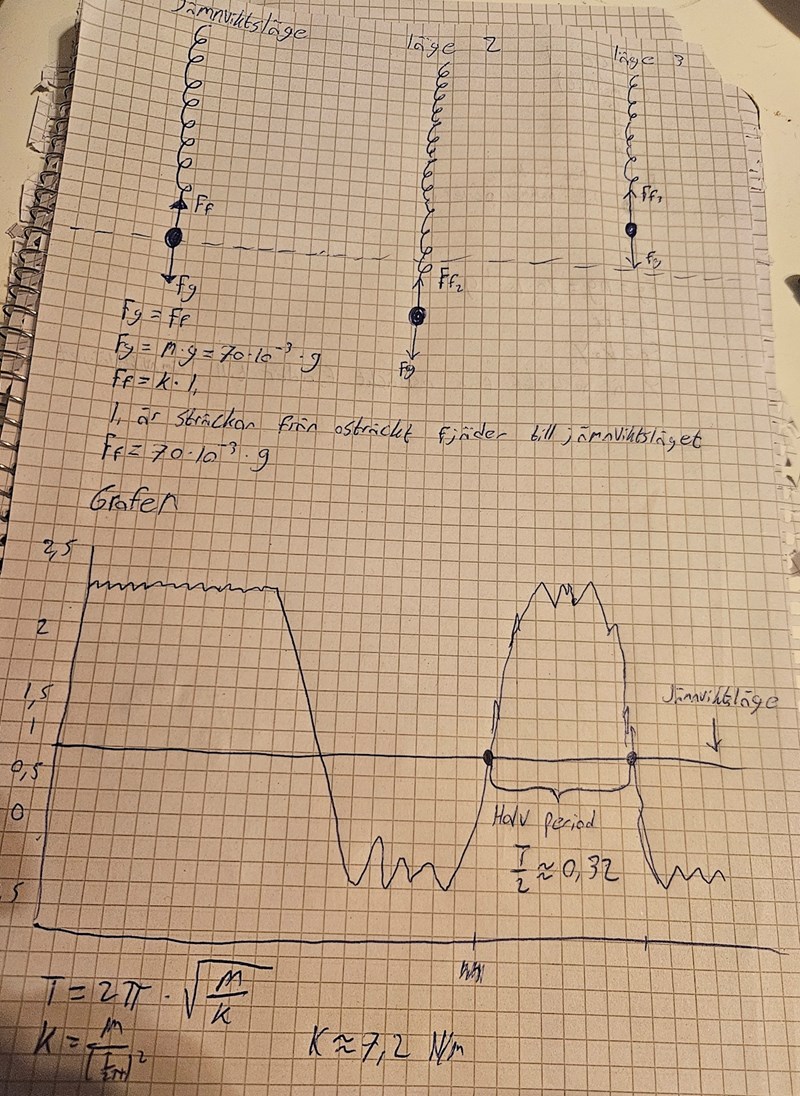 Jämnviktsläge
läge 2
läge 3
Ff
Fg
Ff₂
Fg
Ff₃
Fg
Fg = Ff
Fg = m·g = 70·10⁻³·g
Ff = k·l₁
l₁ är sträckan från osträckt fjäder till jämnviktsläget
Ff = 70·10⁻³·g
Grafen
2,5
2
1,5
1
0,5
0
5
Jämnviktsläge
Halv period
T/2 ≈ 0,32
T = 2π · √(m/k)
K = m/(T/2π)²
K ≈ 7,2 N/m